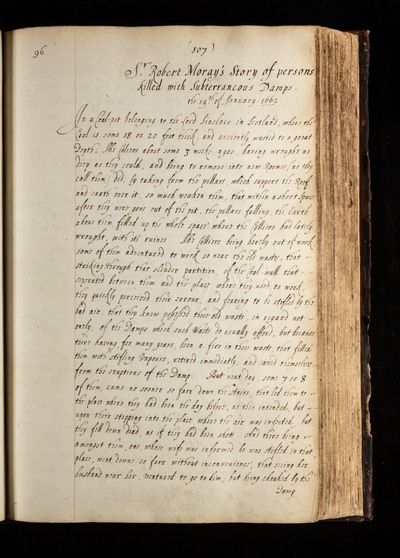 96
(107)
Sr. Robert Moray's Story of persons
killed with Subterraneous Damps.
the 14th of January 1662
In a Coal-pit belonging to the Lord Sinclair in Scotland, where the
Coal is some 18 or 20 foot thick, and anciently wasted to a great
Depth. The Colliers about some 3 weeks agoe, having wrought as
deep as they could, and being to remove into new Roomes (as they
call them) did, by taking from the pillars, which support the Roof
and earth over it, so much weaken them, that within a short space
after they were gone out of the pit, the pillars falling, the Earth
above them filled up the whole space where the Colliers had lately
wrought, with its ruines. The Colliers being hereby out of work
some of them adventured to work so near the old waste, that
striking through that slender partition, of the Coal-wall that
separated between them and the place where they used to work,
they quickly perceived their errour, and fearing to be stifled by the
bad air, that they knew possessed these old wasts, in regard not
onely of the Damps which such Wasts do usually afford, but because
there having for many years, been a fire in those wasts, that filled
them with stifling Vapours, retired immediatly, and saved themselves
from the eruptions of the Damp. But next day, some 7 or 8
of them, came no sooner so farr down the stairs, that led them to
the place where they had been the day before, as they intended, but
upon their stepping into the place where the air was infected, but
they fell down dead, as if they had been shott. And there being
amongst them one, whose wife was informed he was stifled in that
place, went downe so farr without inconvenience, that seeing her
husband near her, ventured to go to him, but being choaked by the
Damp